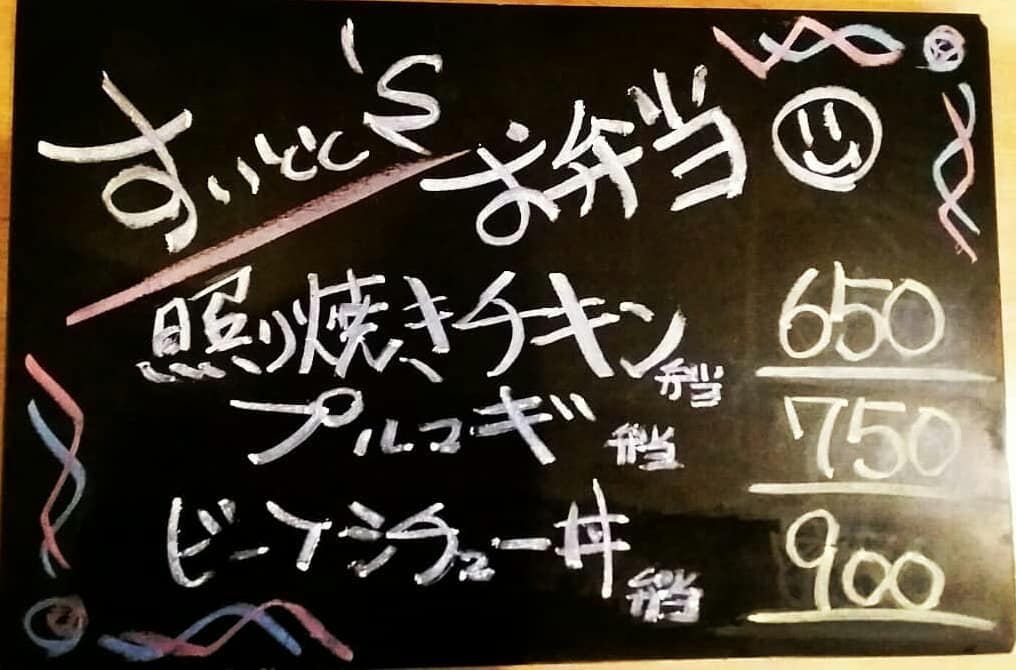 すいとと'S お弁当
照り焼きチキン弁当 650
プルコギ弁当 750
ビーフシチュー丼弁当 900